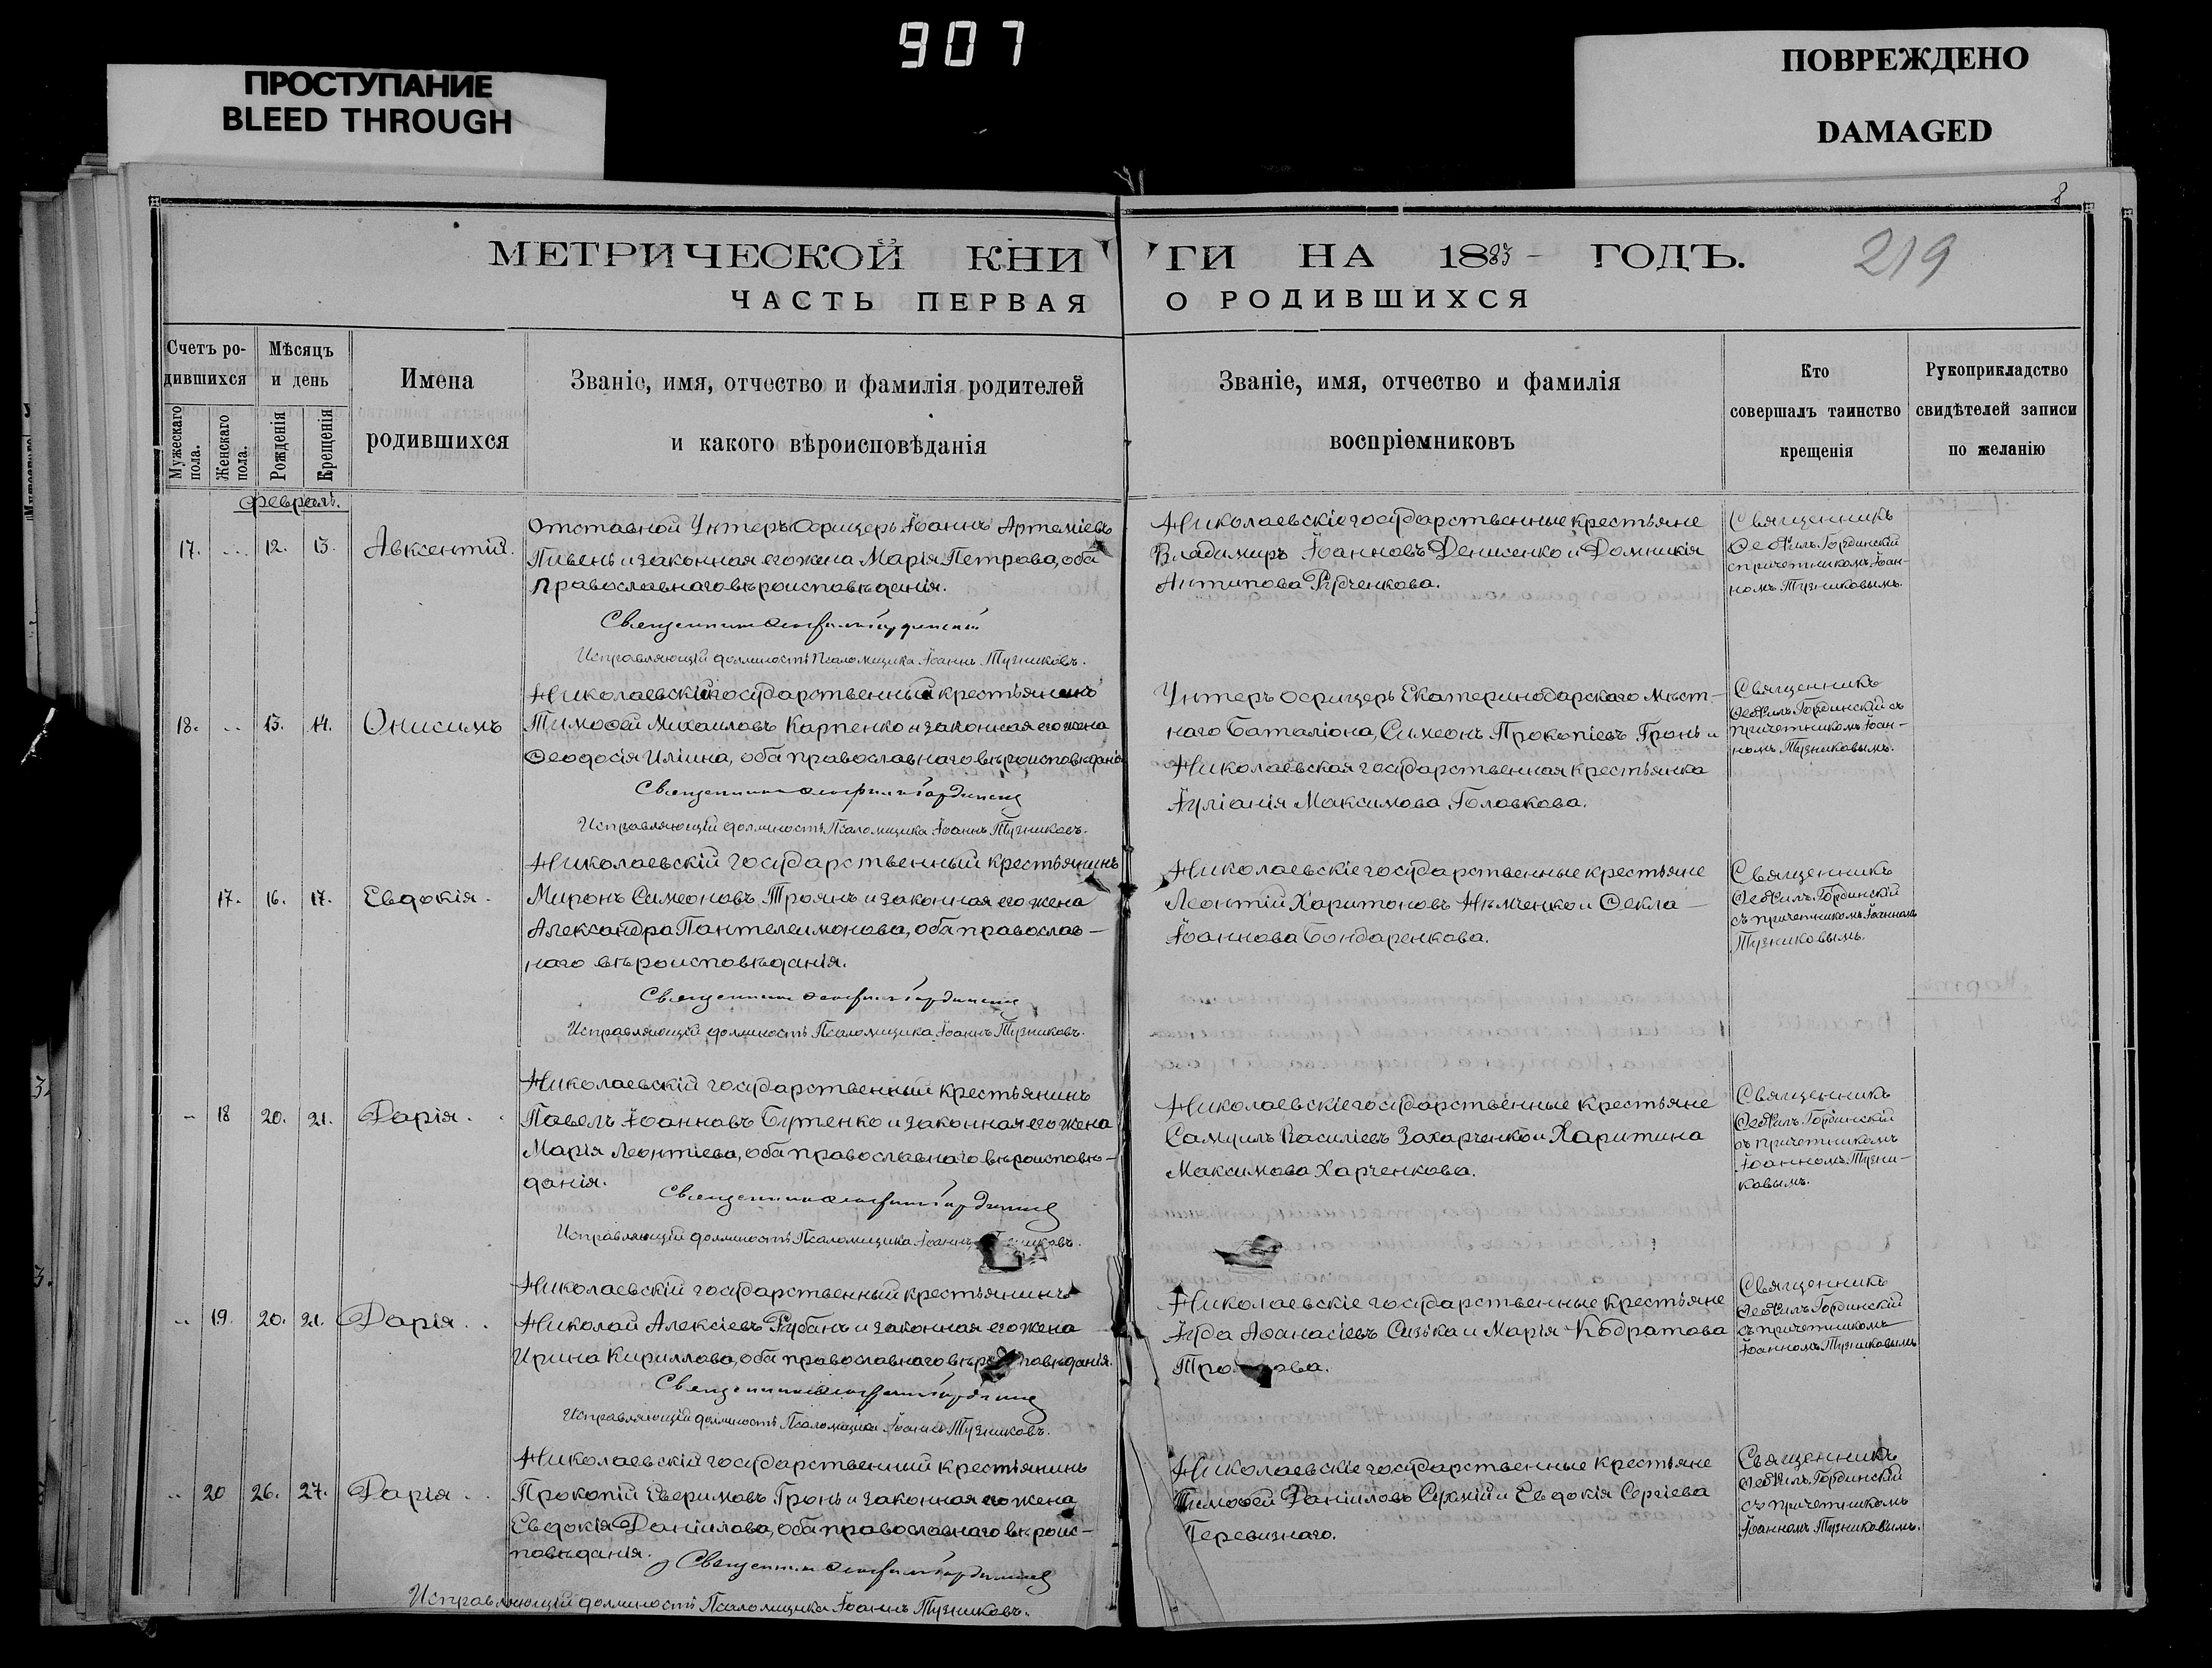 907
ПРОСТУПАНИЕ
BLEED THROUGH
ПОВРЕЖДЕНО
DAMAGED
8
219
МЕТРИЧЕСКОЙ КНИГИ НА 1883 ГОДЪ.
ЧАСТЬ ПЕРВАЯ О РОДИВШИХСЯ
Счетъ ро-
дившихся
Мужескаго пола.
Женскаго пола.
Мѣсяцъ
и день
Рожденія
Крещенія
Имена
родившихся
Званіе, имя, отчество и фамилія родителей
и какого вѣроисповѣданія
Званіе, имя, отчество и фамилія
воспріемниковъ
Кто
совершалъ таинство
крещенія
Рукоприкладство
свидѣтелей записи
по желанію
Февраль.
17. 12. 13. Авксентій.
Отставной Унтеръ Офицеръ Іоаннъ Артеміевъ
Пивень и законная его жена Марія Петрова, оба
православнаго вѣроисповѣданія.
Священникъ Ѳеофилъ Гординскій
Исправляющій должность Псаломщика Іоаннъ Тузниковъ.
Николаевскіе государственные крестьяне
Владимиръ Іоанновъ Денисенко и Домникія
Антипова Рудченкова.
Священникъ
Ѳеофилъ Гординскій
с причетникомъ Іоан-
номъ Тузниковымъ.
18. 13. 14. Онисимъ
Николаевскій государственный крестьянинъ
Тимофей Михаиловъ Карпенко и законная его жена
Ѳеодосія Иліина, оба православнаго вѣроисповѣданія
Священникъ Ѳеофилъ Гординскій
Исправляющій должность Псаломщика Іоаннъ Тузниковъ.
Унтеръ офицеръ Екатеринодарского Мѣст-
наго Баталіона, Симеонъ Прокопіевъ Гронь и
Николаевская государственная крестьянка
Іуліанія Максимова Головкова.
Священникъ
Ѳеофилъ Гординскій съ
причетникомъ Іоан-
номъ Тузниковымъ.
17. 16. 17. Евдокія.
Николаевскій государственный крестьянинъ
Миронъ Симеоновъ Троянъ и законная его жена
Александра Пантелеимонова, оба православ-
наго вѣроисповѣданія.
Священникъ Ѳеофилъ Гординскій
Исправляющій должность Псаломщика Іоаннъ Тузниковъ.
Николаевскіе государственные крестьяне
Леонтій Харитоновъ Нѣмченко и Ѳекла
Іоаннова Бондаренкова.
Священникъ
Ѳеофилъ Гординскій
съ причетникомъ Іоанномъ
Тузниковымъ.
18 20. 21. Дарія.
Николаевскій государственный крестьянинъ
Павелъ Іоанновъ Бутенко и законная его жена
Марія Леонтіева, оба православнаго вѣроисповѣ-
данія.
Священникъ Ѳеофилъ Гординскій
Исправляющій должность Псаломщика Іоаннъ
Николаевскіе государственные крестьяне
Самуилъ Василіевъ Захарченко и Харитина
Максимова Харченкова.
Священникъ
Ѳеофилъ Гординскій
съ причетникомъ
Іоанномъ Тузни-
ковымъ.
19. 20. 21. Дарія.
Николаевскій государственный крестьянинъ
Николай Алексіевъ Рубанъ и законная его жена
Ирина Кириллова, оба православнаго вѣроисповѣданія.
Священникъ Ѳеофилъ Гординскій
Исправляющій должность Псаломщика Іоаннъ Тузниковъ.
Николаевскіе государственные крестьяне
Іуда Аѳанасіевъ Сизька и Марія Кодратова
Священникъ
Ѳеофилъ Гординскій
съ причетникомъ
Іоанномъ Тузниковымъ
20 26. 27. Дарія.
Николаевскій государственний крестьянинъ
Прокопій Еверимовъ Гронь и законная его жена
Евдокія Даніилова, оба православнаго вѣроис-
повѣданія.
Священникъ Ѳеофилъ Гординскій
Исправляющій должность Псаломщика Іоаннъ Тузниковъ.
Николаевскіе государственные крестьяне
Тимофей Даніиловъ Сухній и Евдокія Сергіева
Теревизнаго.
Священникъ
Ѳеофилъ Гординскій
съ причетникомъ
Іоанномъ Тузниковымъ.